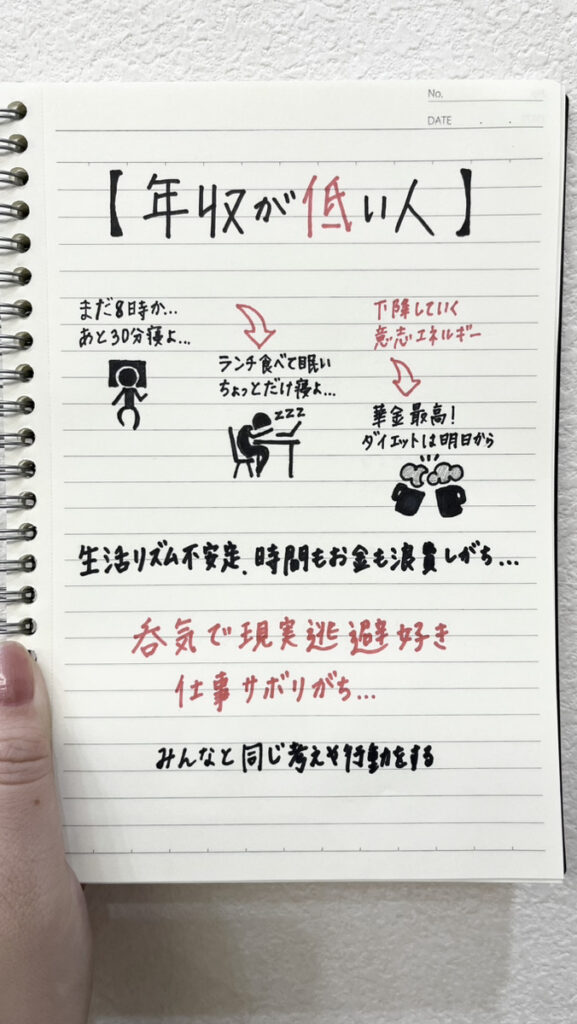 No.
DATE . .
【年収が低い人】
まだ8時か...
あと30分寝よ...
ランチ食べて眠い
ちょっとだけ寝よ...
zzz
下降していく
意志エネルギー
華金最高!
ダイエットは明日から
生活リズム不安定、時間もお金も浪費しがち...
呑気で現実逃避好き
仕事サボりがち...
みんなと同じ考えや行動をする